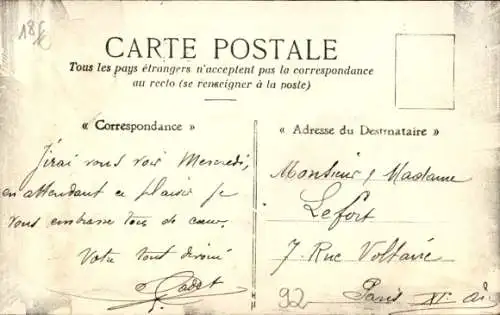 18f
CARTE POSTALE
Tous les pays étrangers n'acceptent pas la correspondance
au recto (se renseigner à la poste)
« Correspondance »
« Adresse du Destinataire »
J'irai vous voir Mercredi,
en attendant ce plaisir je
vous embrasse tous de cœur.
Votre tout dévoué
Cadot
Monsieur & Madame
Lefort
7 Rue Voltaire
Paris XI Arr
92